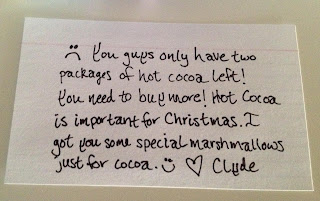 ☹ You guys only have two
packages of hot cocoa left!
You need to buy more! Hot Cocoa
is important for Christmas. I
got you some special marshmallows
just for cocoa. ☺ ♡ Clyde